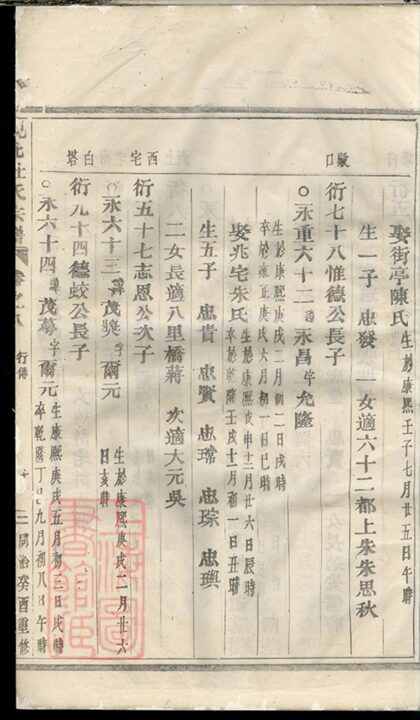 娶街亭陳氏 生於康熙壬子七月廿五日午時
生一子 忠發 一女適六十二都上朱朱思秋
口
衍七十八惟德公長子
永重六十二 諱永昌字允隆
生於康熙庚戌二月初二日戌時
卒於雍正庚戌六月初一日巳時
娶兆宅朱氏 生於康熙戊申十二月廿六日辰時
卒於乾隆壬戌十一月初一日丑時
生五子 忠貴 忠賢 忠瑺 忠琮 忠璵
二女長適八里橋蔣 次適大元吳
宅西
衍五十七志恩公次子
永六十三 諱茂獎字爾元 生於康熙庚戌二月廿六日亥時
塔白
衍九十四德蛟公長子
永六十四 諱茂蓁字爾元 生康熙庚戌五月初三日戌時
卒乾隆丁巳九月初八日午時
杜氏宗譜 卷之八 行傳 同治癸酉重修